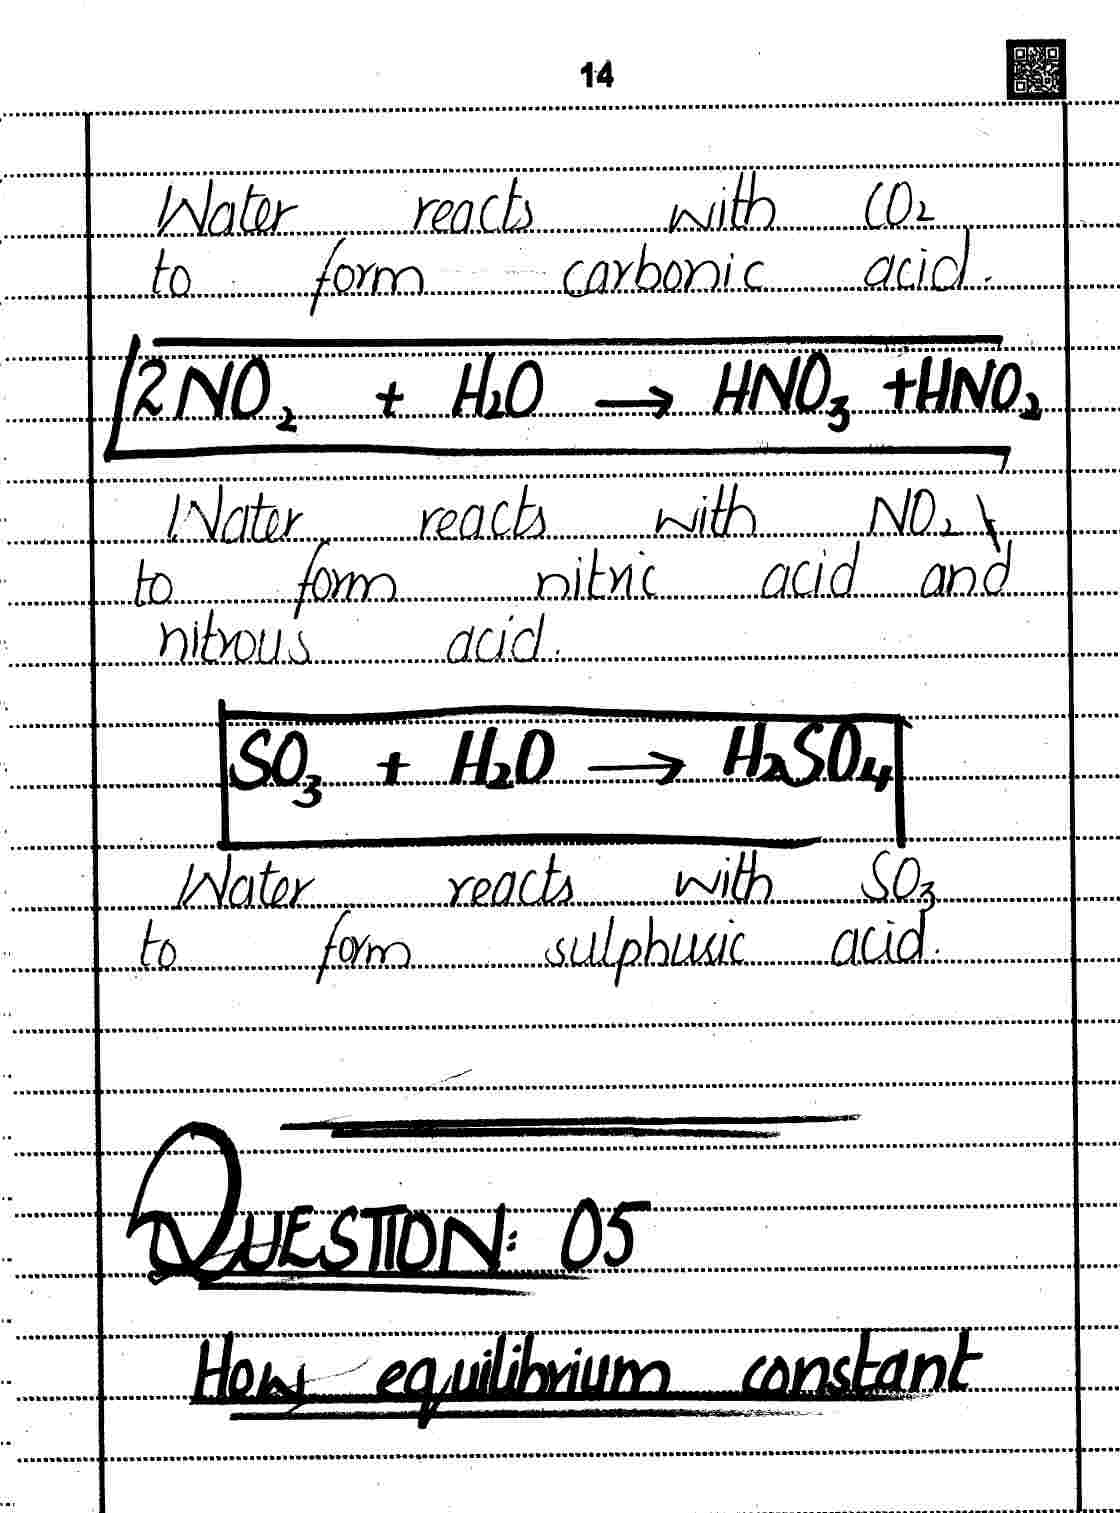 14
Water reacts with CO₂
to form carbonic acid.
2NO₂ + H₂O → HNO₃ +HNO₂
Water reacts with NO₂
to form nitric acid and
nitrous acid.
SO₃ + H₂O → H₂SO₄
Water reacts with SO₃
to form sulphusic acid.
QUESTION: 05
How equilibrium constant